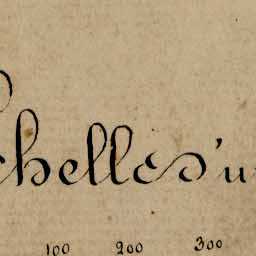 chelle d'u
100 200 300